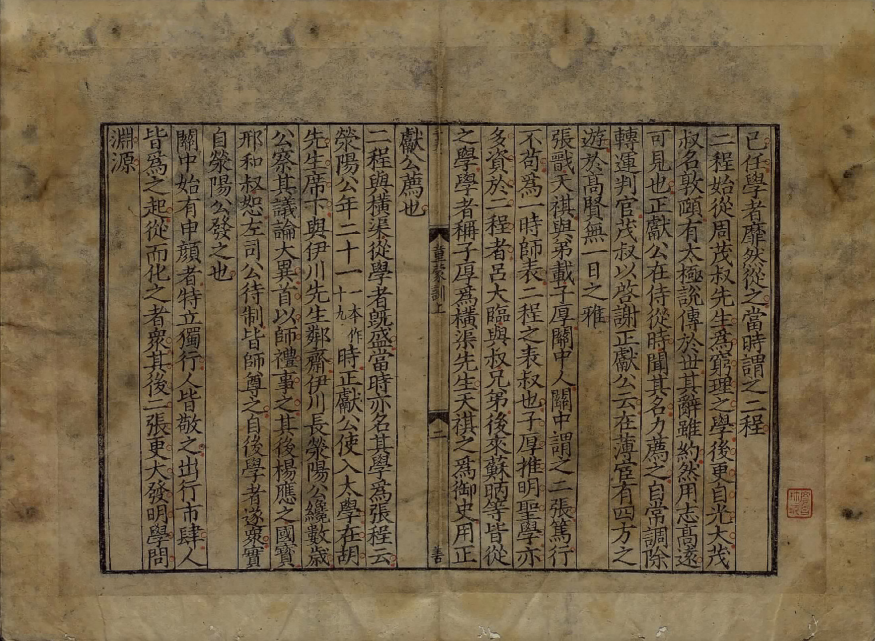 己任學者靡然從之當時謂之二程
二程始從周茂叔先生爲窮理之學後更自光大茂
叔名敦頤有太極說傳於世其辭雖約然用志高遠
可見也正獻公在侍從時聞其名力薦之自常調除
轉運判官茂叔以啓謝正獻公云在薄宦有四方之
遊於高賢無一日之雅
張戩天祺與弟載子厚關中人關中謂之二張篤行
不苟爲一時師表二程之表叔也子厚推明聖學亦
多資於二程者呂大臨與叔兄弟後來蘇昞等皆從
之學學者稱子厚爲橫渠先生天祺之爲御史用正
獻公薦也
童蒙訓上
二
善
二程與橫渠從學者旣盛當時亦名其學爲張程云
滎陽公年二十一一本作十九時正獻公使入太學在胡
先生席下與伊川先生鄰齋伊川長滎陽公纔數歲
公察其議論大異首以師禮事之其後楊應之國寶
邢和叔恕左司公待制皆師尊之自後學者遂衆實
自滎陽公發之也
關中始有申顏者特立獨行人皆敬之出行市肆人
皆爲之起從而化之者衆其後二張更大發明學問
淵源